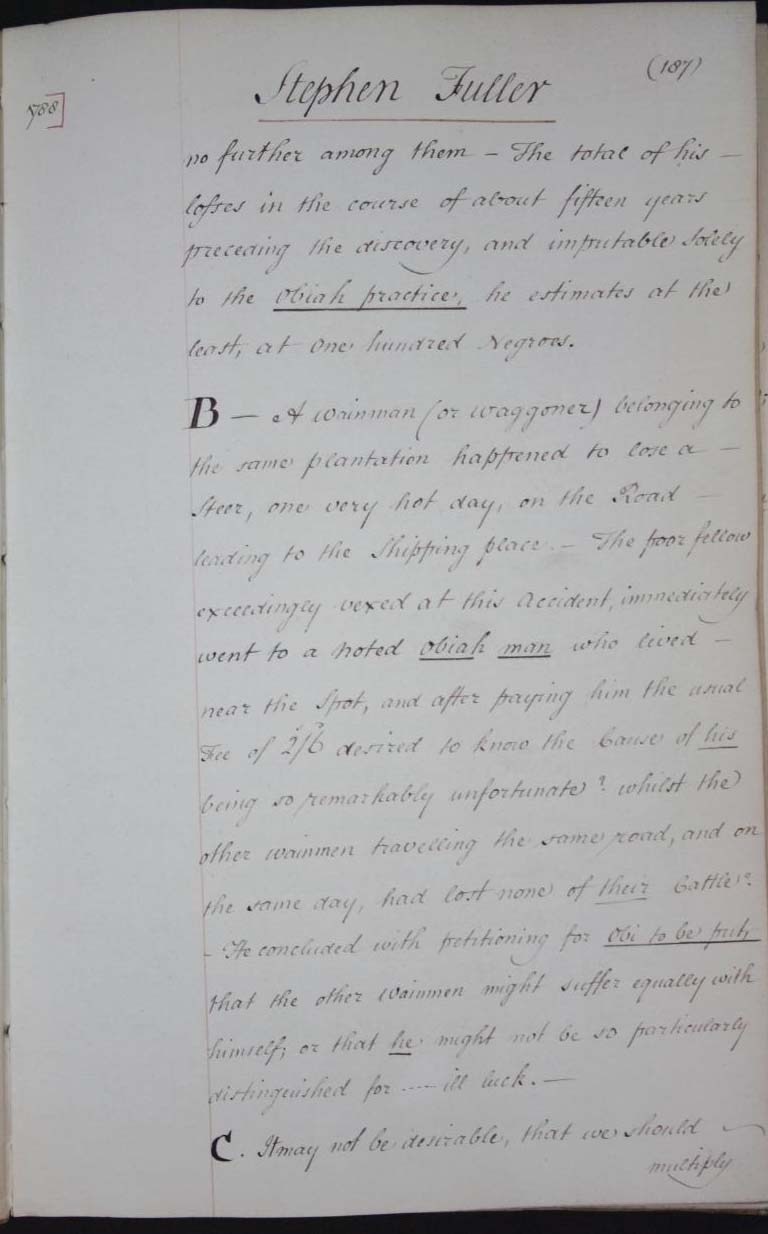 (187)
Stephen Fuller
788]
no further among them – The total of his –
losses in the course of about fifteen years
preceding the discovery, and imputable solely
to the Obiah practice, he estimates at the
least, at one hundred Negroes.
B – A wainman (or waggoner) belonging to
the same plantation happened to lose a –
Steer, one very hot day, on the Road –
leading to the Shipping place. – The poor fellow
exceedingly vexed at this Accident, immediately
went to a noted Obiah man who lived –
near the Spot, and after paying him the usual
Fee of 2/6 desired to know the Cause of his
being so remarkably unfortunate? whilst the
other wainmen travelling the same road, and on
the same day, had lost none of their Cattle?
– He concluded with petitioning for Obi to be put,
that the other Wainmen might suffer equally with
himself; or that he might not be so particularly
distinguished for ---- ill luck. –
C. It may not be desirable, that we should –
multiply